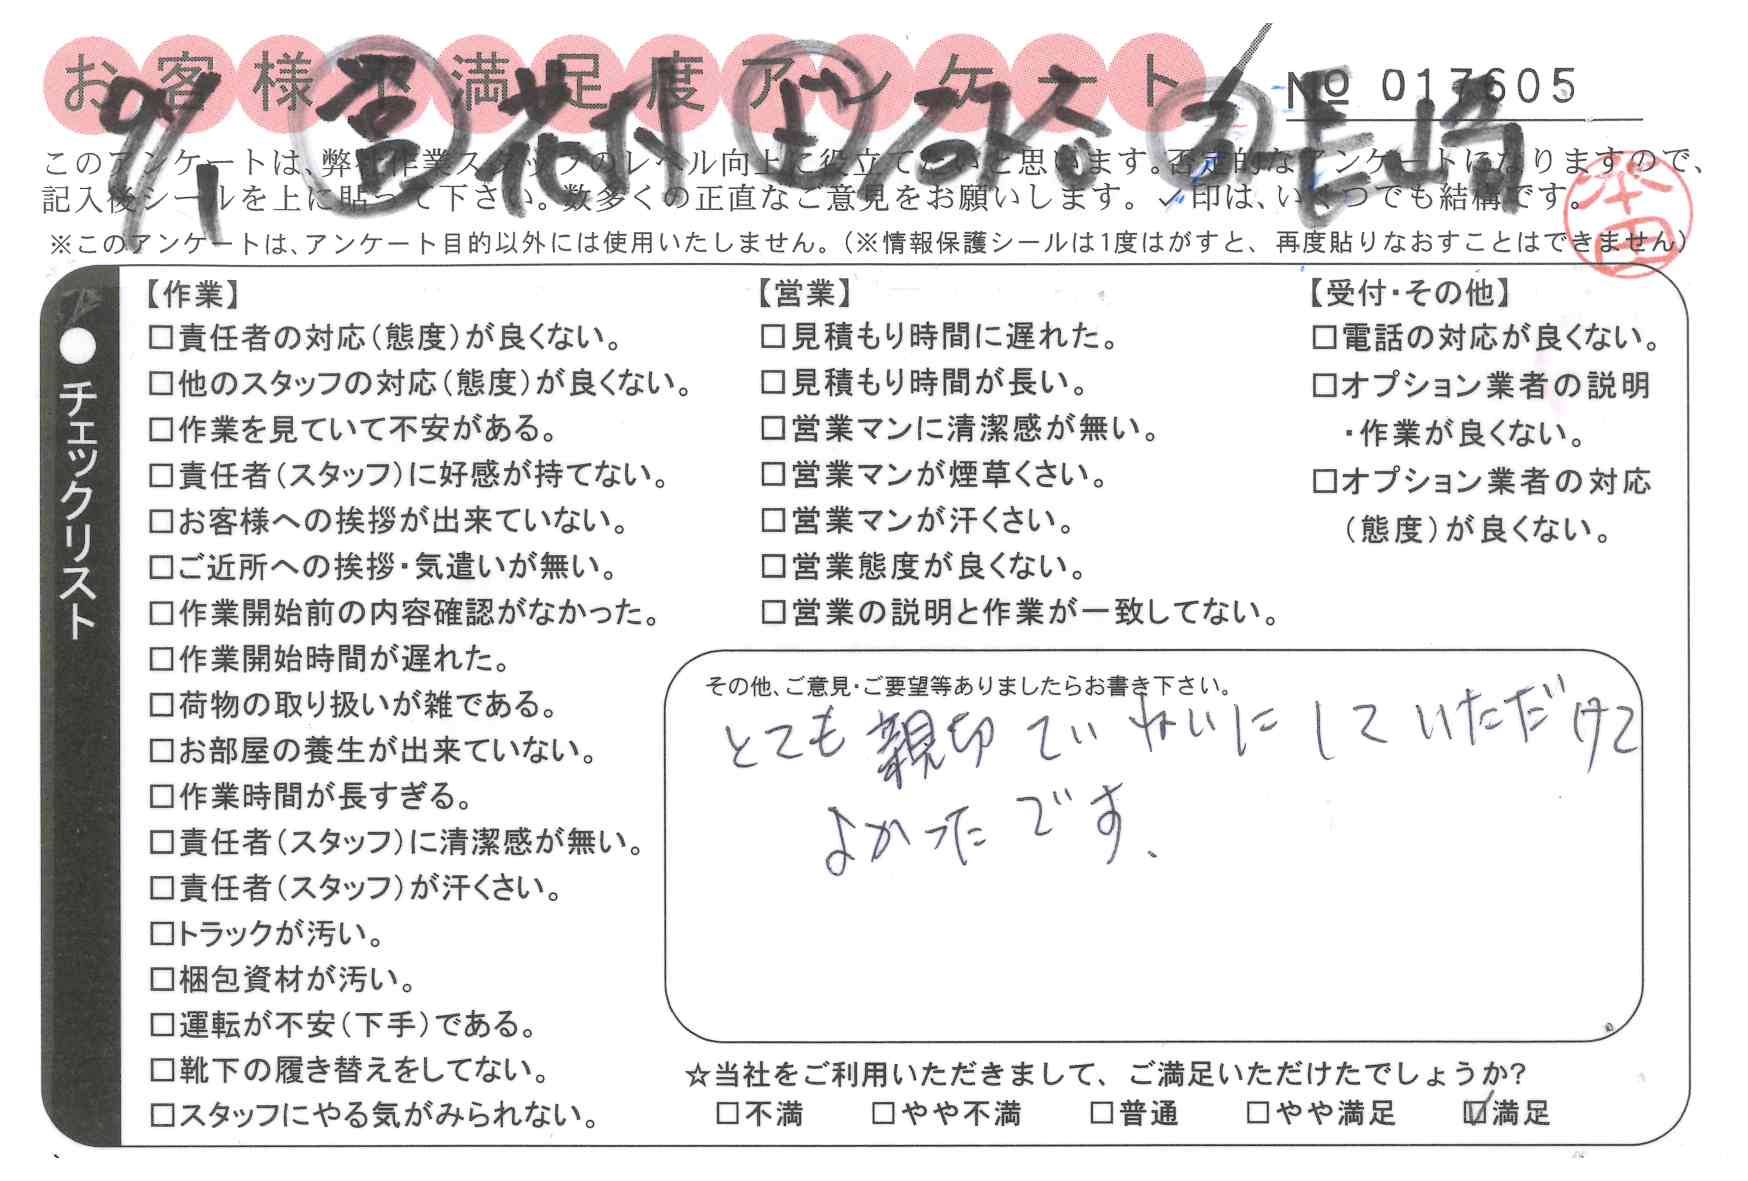 お客様不満足度アンケート
№ 017605
9/1 営 花村 山 石谷 長崎
このアンケートは、弊社作業スタッフのレベル向上に役立てたいと思います。否定的なアンケートになりますので、
記入後シールを上に貼って下さい。数多くの正直なご意見をお願いします。✓印は、いくつでも結構です。
本田
※このアンケートは、アンケート目的以外には使用いたしません。(※情報保護シールは1度はがすと、再度貼りなおすことはできません)
●チェックリスト
【作業】
□責任者の対応(態度)が良くない。
□他のスタッフの対応(態度)が良くない。
□作業を見ていて不安がある。
□責任者(スタッフ)に好感が持てない。
□お客様への挨拶が出来ていない。
□ご近所への挨拶・気遣いが無い。
□作業開始前の内容確認がなかった。
□作業開始時間が遅れた。
□荷物の取り扱いが雑である。
□お部屋の養生が出来ていない。
□作業時間が長すぎる。
□責任者(スタッフ)に清潔感が無い。
□責任者(スタッフ)が汗くさい。
□トラックが汚い。
□梱包資材が汚い。
□運転が不安(下手)である。
□靴下の履き替えをしてない。
□スタッフにやる気がみられない。
【営業】
□見積もり時間に遅れた。
□見積もり時間が長い。
□営業マンに清潔感が無い。
□営業マンが煙草くさい。
□営業マンが汗くさい。
□営業態度が良くない。
□営業の説明と作業が一致してない。
【受付・その他】
□電話の対応が良くない。
□オプション業者の説明
・作業が良くない。
□オプション業者の対応
(態度)が良くない。
その他、ご意見・ご要望等ありましたらお書き下さい。
とても親切ていねいにしていただけて
よかったです、
☆当社をご利用いただきまして、ご満足いただけたでしょうか?
□不満 □やや不満 □普通 □やや満足 ☑満足